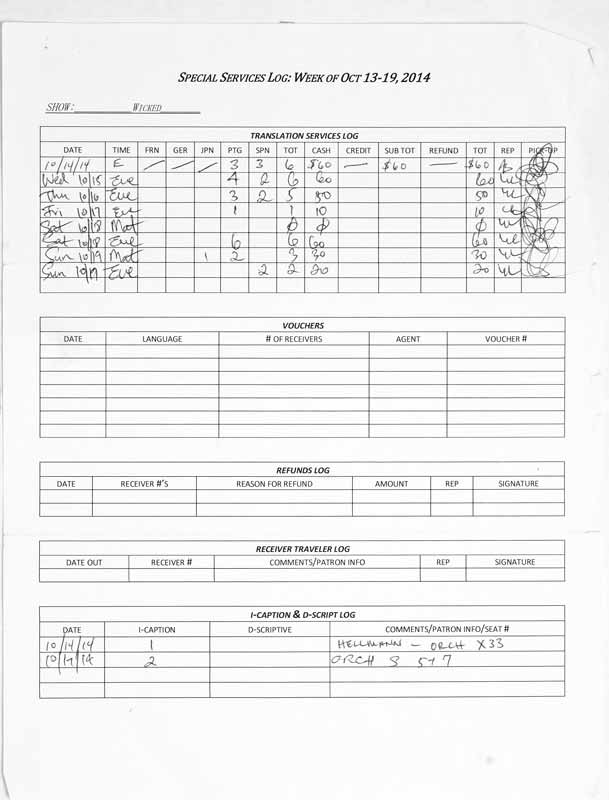 SPECIAL SERVICES LOG: WEEK OF OCT 13-19, 2014
SHOW: WICKED
TRANSLATION SERVICES LOG
DATE TIME FRN GER JPN PTG SPN TOT CASH CREDIT SUB TOT REFUND TOT REP PICK-UP
10/14/14 E — — — 3 3 6 $60 — $60 $60
Wed 10/15 Eve 4 2 6 60 60
Thu 10/16 Eve 3 2 5 50 50
Fri 10/17 Eve 1 1 10 10
Sat 10/18 Mat Ø Ø Ø
Sat 10/18 Eve 6 6 60 60
Sun 10/19 Mat 1 2 3 30 30
Sun 10/19 Eve 2 2 20 20
VOUCHERS
DATE LANGUAGE # OF RECEIVERS AGENT VOUCHER #
REFUNDS LOG
DATE RECEIVER #'S REASON FOR REFUND AMOUNT REP SIGNATURE
RECEIVER TRAVELER LOG
DATE OUT RECEIVER # COMMENTS/PATRON INFO REP SIGNATURE
I-CAPTION & D-SCRIPT LOG
DATE I-CAPTION D-SCRIPTIVE COMMENTS/PATRON INFO/SEAT #
10/14/14 1 HELLMANN – ORCH X33
10/17/14 2 ORCH S 5+7